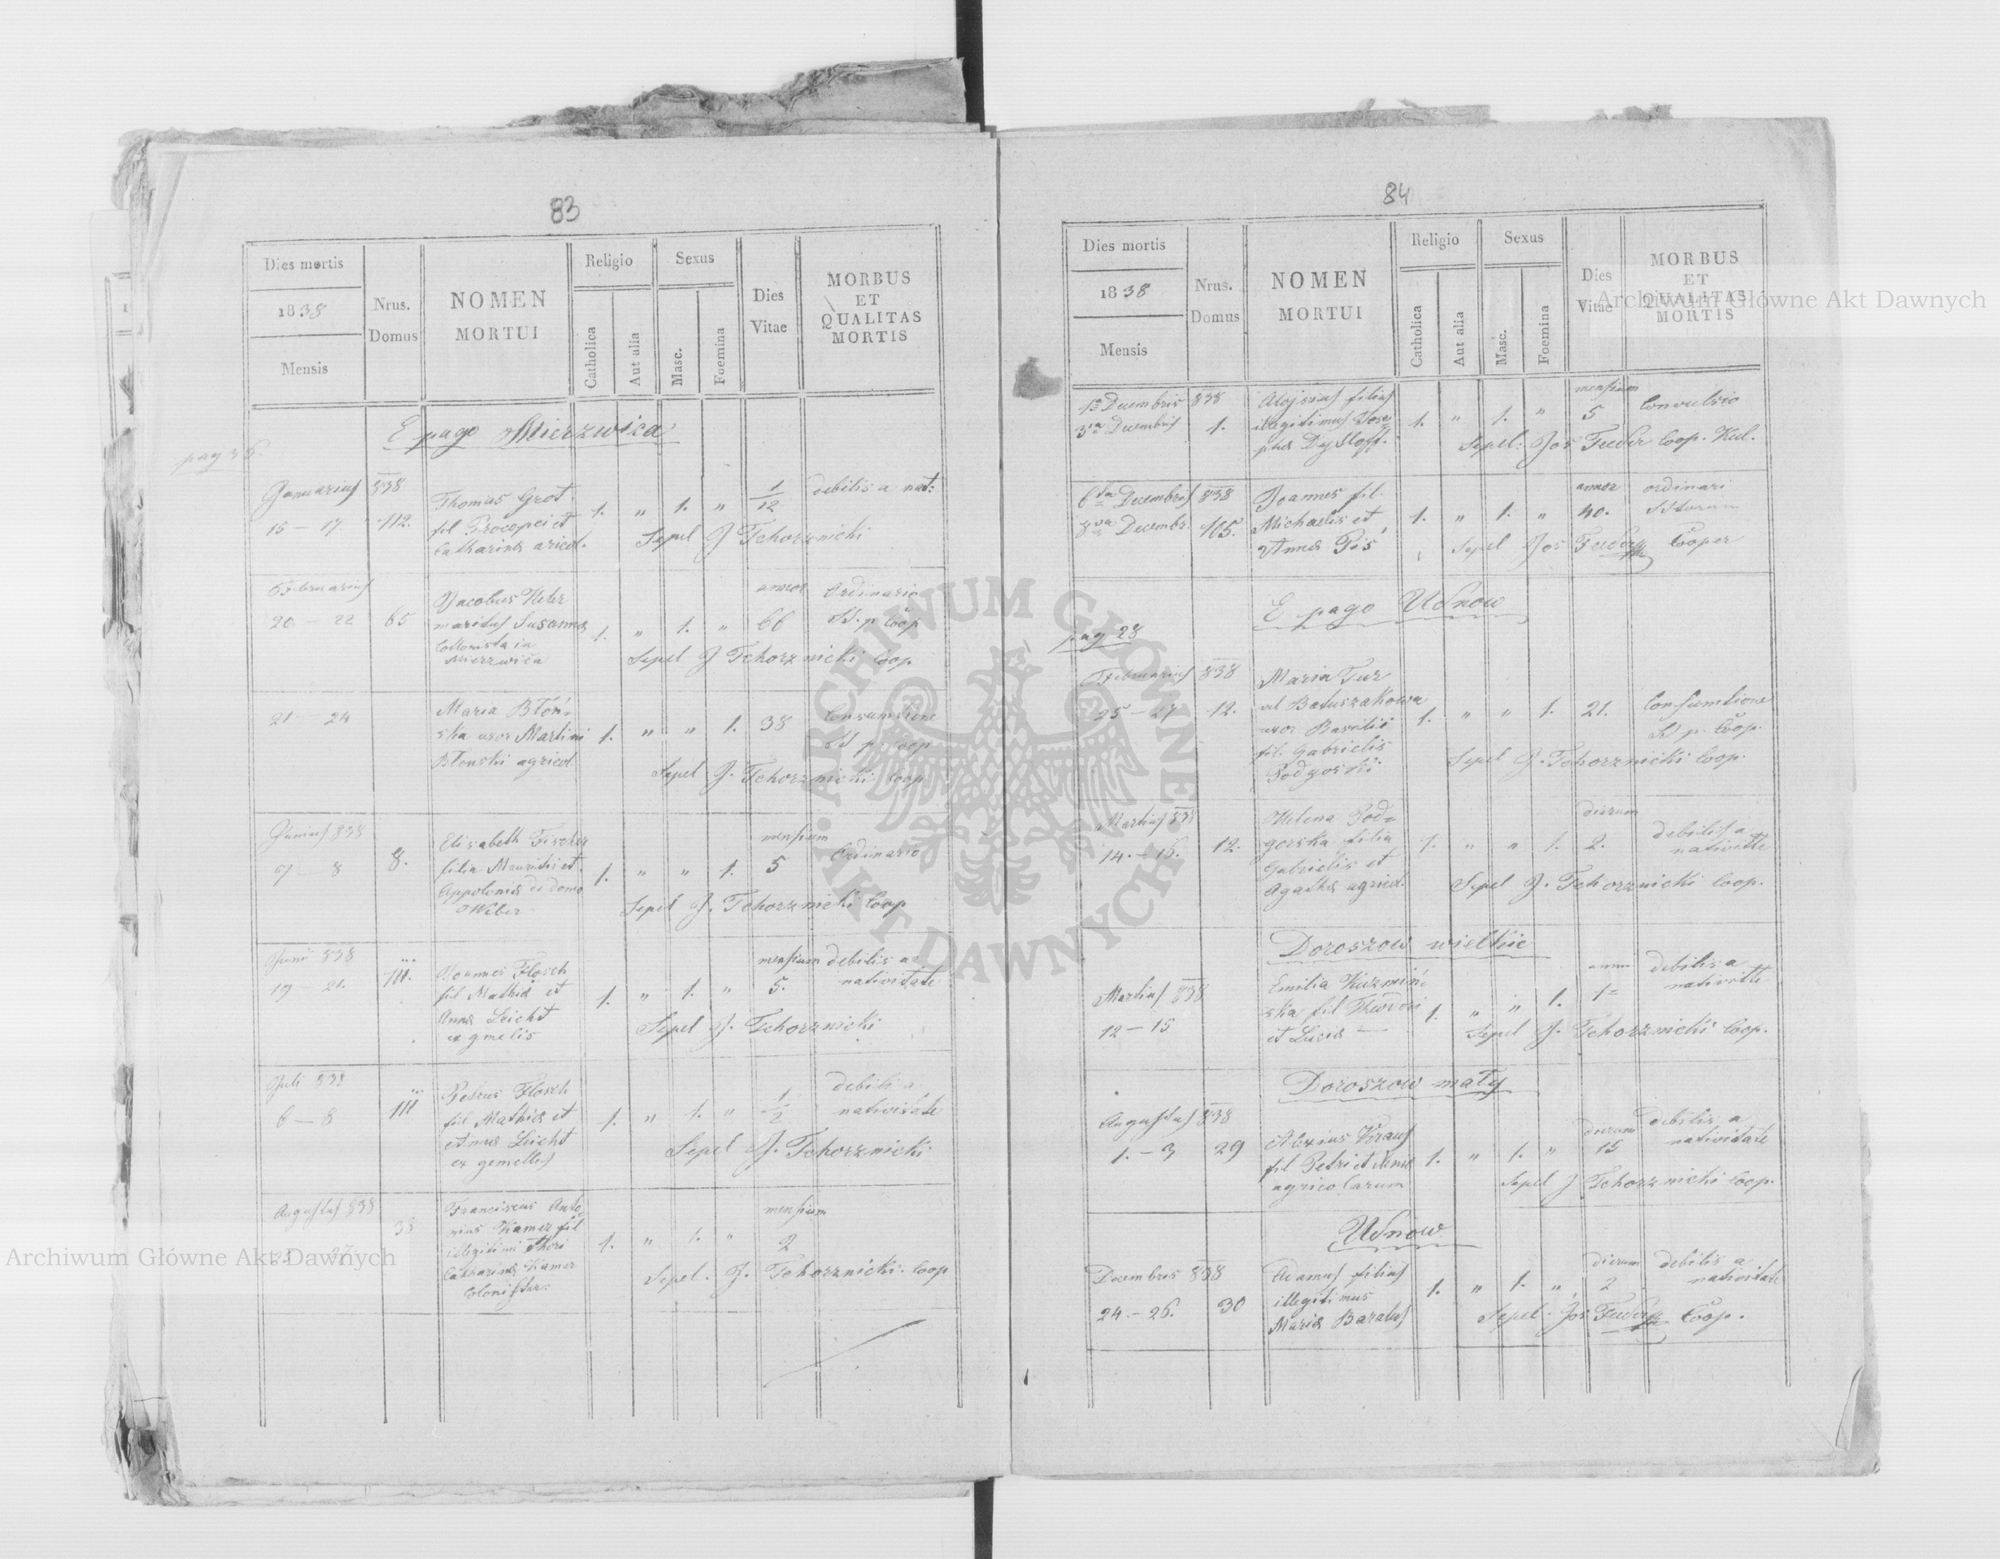 83
Dies mortis
1838
Mensis
Nrus.
Domus
NOMEN
MORTUI
Religio
Catholica
Aut alia
Sexus
Masc.
Foemina
Dies
Vitae
MORBUS
ET
QUALITAS
MORTIS
E pago Mierzwica
Januarius 838
15 – 17. 112.
Thomas Grot
fil Procopei et
Catharina agricol.
1. „ 1. „ 1/12 debilis a nat:
Sepel J Tchorznicki
Februarius
20 – 22 65
Jacobus
maritus Susanna
Collonista in
Mierzwica
1. „ 1. „ annor 66 Ordinario
Sepel J Tchorznicki Coop
21 – 24
Maria Błoń-
ska uxor Martini
Błonski agricol
1. „ „ 1. 38 Consumtione
Sepel J. Tchorznicki Coop
Junius 838
7 – 8 8.
Elisabeth Fischer
filia Mauritii et
Appolonia de domo
Weber
1. „ „ 1. mensium 5 Ordinario
Sepel J. Tchorznicki Coop
Junii 838
19 – 21. 111.
Joannes Flosch
fil Mathia et
Anna Leicht
ex gmelis
1. „ 1. „ mensium 5. debilis a
nativitate
Sepel J. Tchorznicki
Juli 838
6 – 8 111
Petrus Flosch
fil Mathia et
Anna Leicht
ex gemellis
1. „ 1. „ 1/2 debilis a
nativitate
Sepel J. Tchorznicki
Augustus 838
25 27. 38
Franciscus Anto-
nius Kamer fil
illegitimi Thori
Catharina Kamer
1. „ 1. „ mensium 2
Sepel. J. Tchorznicki Coop
84
Dies mortis
1838
Mensis
Nrus.
Domus
NOMEN
MORTUI
Religio
Catholica
Aut alia
Sexus
Masc.
Foemina
Dies
Vitae
MORBUS
ET
QUALITAS
MORTIS
Decembris 838
3 Decembris 1.
Alojsius filius
illegitimus Jose-
pha Dysloff.
1. „ 1. „ mensium 5 Convulsio
Sepel: Jos Feeder Coop. Kul.
6ta Decembris 838
8va Decembr. 105.
Joannes fil.
Michaelis et
Anna Pis
1. „ 1. „ annor 40. ordinari
Sepel Jos Feeder Cooper
E pago Udnow
pag 28
Februarius 838
25 – 27 12.
Maria Tur
vel Batuszakowa
uxor Basilii
fil. Gabrielis
Podgorski
1. „ „ 1. 21. Consumtione
Sepel J. Tchorznicki Coop.
Martius 838
14. – 16. 12.
Helena Pod-
gorska filia
Gabrielis et
Agatha agricol.
1. „ „ 1. dierum 2. debilis a
nativitte
Sepel J. Tchorznicki Coop.
Doroszow wielkie
Martius 838
12 – 15
Emilia Kuzmiń-
ska fil
et Lucia —
1. „ „ 1. anni 1 debilis a
nativitte
Sepel J. Tchorznicki Coop.
Doroszow mały
Augustus 838
1. – 3 29
Alexius Kraus
fil Petri et Anna
agricolarum
1. „ 1. „ dierum 15 debilis a
nativitate
Sepel J Tchorznicki Coop.
Udnow
Decembris 838
24. – 26. 30
Adamus filius
illegitimus
Maria Baralus
1. „ 1. „ dierum 2 debilis a
nativitate
Sepel. Jos Feeder Coop.
Archiwum Główne Akt Dawnych
Archiwum Główne Akt Dawnych
ARCHIWUM GŁÓWNE AKT DAWNYCH